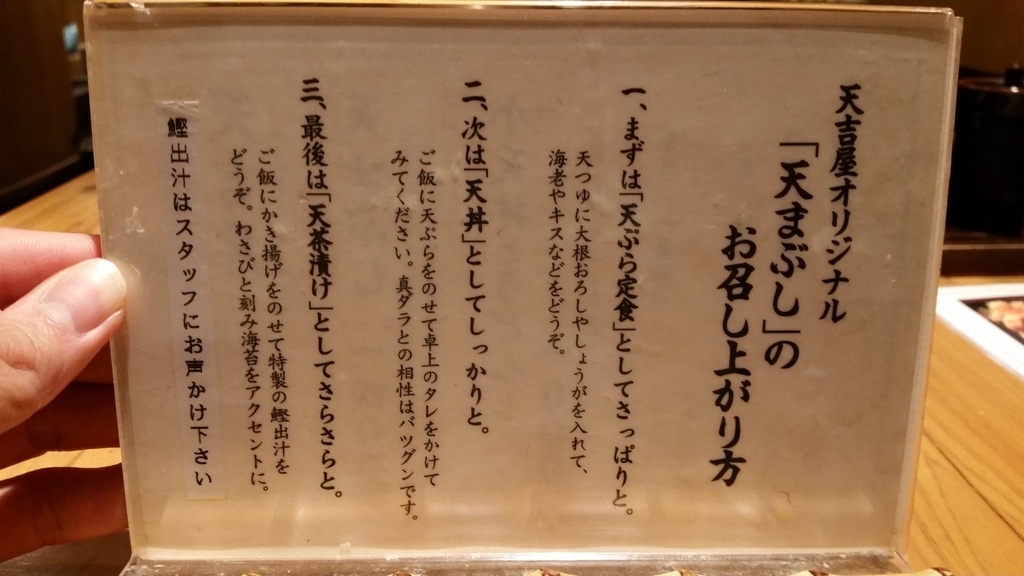 天吉屋オリジナル
「天まぶし」の
お召し上がり方
一、まずは「天ぷら定食」としてさっぱりと。
天つゆに大根おろしやしょうがを入れて、
海老やキスなどをどうぞ。
二、次は「天丼」としてしっかりと。
ご飯に天ぷらをのせて卓上のタレをかけて
みてください。真ダラとの相性はバツグンです。
三、最後は「天茶漬け」としてさらさらと。
ご飯にかき揚げをのせて特製の鰹出汁を
どうぞ。わさびと刻み海苔をアクセントに。
鰹出汁はスタッフにお声かけ下さい